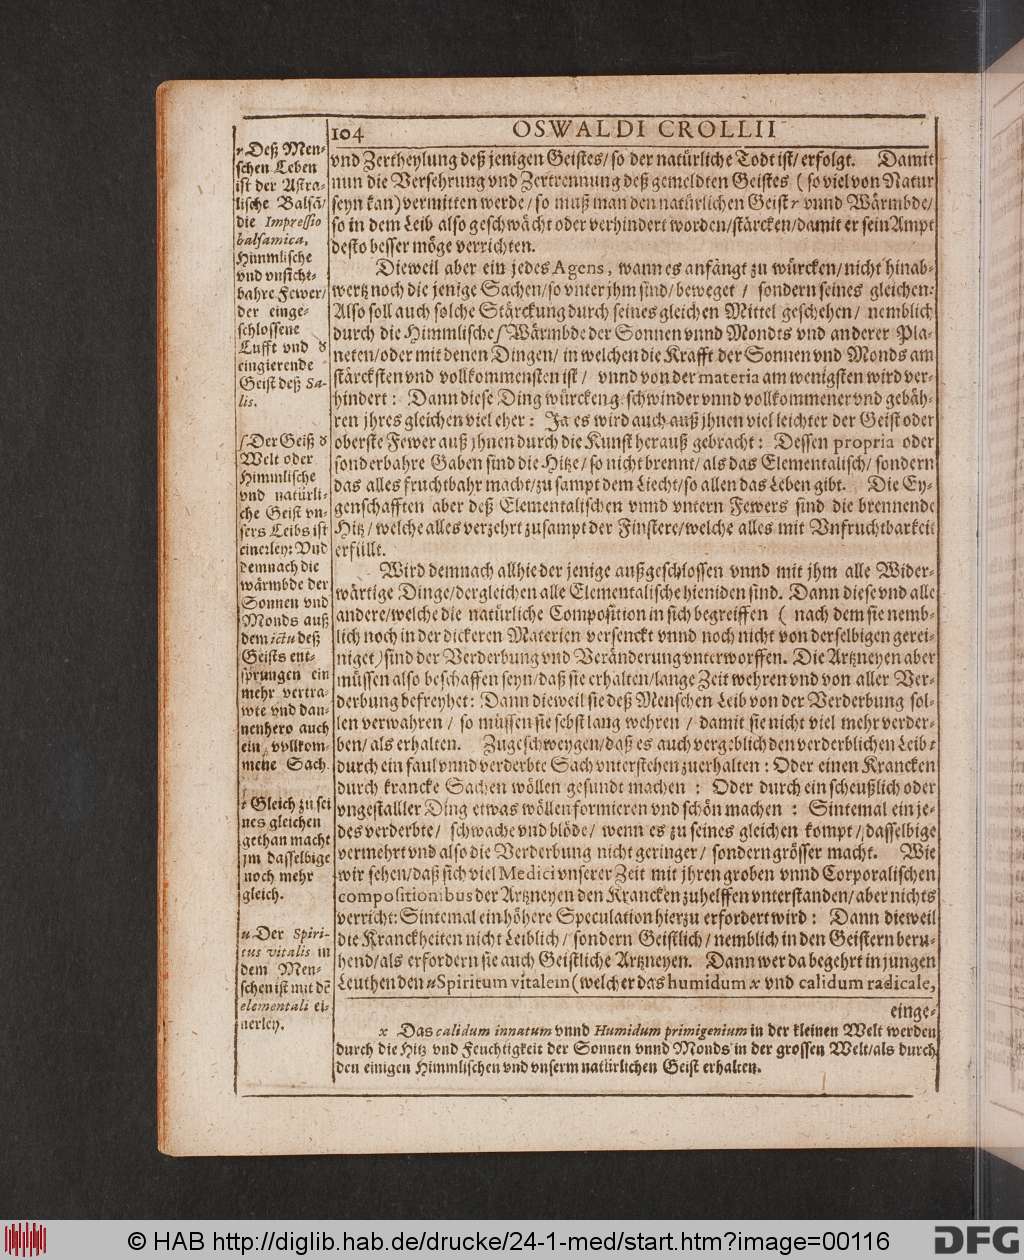 104 OSWALDI CROLLII
vnd Zertheylung deß jenigen Geistes/ so der natürliche Todt ist/ erfolgt. Damit
nun die Versehrung vnd Zertrennung deß gemeldten Geistes ( so viel von Natur
seyn kan) vermitten werde/ so muß man den natürlichen Geist r vnnd Wärmbde/
so in dem Leib also geschwächt oder verhindert worden/ stärcken/ damit er sein Ampt
desto besser möge verrichten.
Dieweil aber ein jedes Agens, wann es anfängt zu würcken/ nicht hinab-
wertz noch die jenige Sachen/ so vnter jhm sind/ beweget / sondern seines gleichen:
Also soll auch solche Stärckung durch seines gleichen Mittel geschehen/ nemblich
durch die Himmlische ſ Wärmbde der Sonnen vnnd Mondts vnd anderer Pla-
neten/ oder mit denen Dingen/ in welchen die Krafft der Sonnen vnd Monds am
stärcksten vnd vollkommensten ist/ vnnd von der materia am wenigsten wird ver-
hindert: Dann diese Ding würcken geschwinder vnnd vollkommener vnd gebäh-
ren jhres gleichen viel eher: Ja es wird auch auß jhnen viel leichter der Geist oder
oberste Fewer auß jhnen durch die Kunst herauß gebracht: Dessen propria oder
sonderbahre Gaben sind die Hitze/ so nicht brennt/ als das Elementalisch/ sondern
das alles fruchtbahr macht/ zu sampt dem Liecht/ so allen das Leben gibt. Die Ey-
genschafften aber deß Elementalischen vnnd vntern Fewers sind die brennende
Hitz/ welche alles verzehrt zusampt der Finstere/ welche alles mit Vnfruchtbarkeit
erfüllt.
Wird demnach allhie der jenige außgeschlossen vnnd mit jhm alle Wider-
wärtige Dinge/ dergleichen alle Elementalische hieniden sind. Dann diese vnd alle
andere/ welche die natürliche Composition in sich begreiffen ( nach dem sie nemb-
lich noch in der dickeren Materien versenckt vnnd noch nicht von derselbigen gerei-
niget) sind der Verderbung vnd Veränderung vnterworffen. Die Artzneyen aber
müssen also beschaffen seyn/ daß sie erhalten/ lange Zeit wehren vnd von aller Ver-
derbung befreyhet: Dann dieweil sie deß Menschen Leib von der Verderbung sol-
len verwahren / so müssen sie selbst lang wehren / damit sie nicht viel mehr verder-
ben/ als erhalten. Zugeschweygen/ daß es auch vergeblich den verderblichen Leib t
durch ein faul vnnd verderbte Sach vnterstehen zuerhalten: Oder einen Krancken
durch krancke Sachen wöllen gesundt machen : Oder durch ein scheußlich oder
vngestallter Ding etwas wöllen formieren vnd schön machen : Sintemal ein je-
des verderbte/ schwache vnd blöde/ wenn es zu seines gleichen kompt/ dasselbige
vermehrt vnd also die Verderbung nicht geringer/ sondern grösser macht. Wie
wir sehen/ daß sich viel Medici vnserer Zeit mit jhren groben vnnd Corporalischen
compositionibus der Artzneyen den Krancken zuhelffen vnterstanden/ aber nichts
verricht: Sintemal ein höhere Speculation hierzu erfordert wird: Dann dieweil
die Kranckheiten nicht Leiblich/ sondern Geistlich/ nemblich in den Geistern beru-
hend/ als erfordern sie auch Geistliche Artzneyen. Dann wer da begehrt in jungen
Leuthen den u Spiritum vitalem (welcher das humidum x vnd calidum radicale,
einge-
x Das calidum innatum vnnd Humidum primigenium in der kleinen Welt werden
durch die Hitz vnd Feuchtigkeit der Sonnen vnnd Monds in der grossen Welt/ als durch
den einigen Himmlischen vnd vnserm natürlichen Geist erhalten.
r Deß Men-
schen Leben
ist der Astra-
lische Balsã/
die Impressio
balsamica,
Himmlische
vnd vnsicht-
bahre Fewer/
der einge-
schlossene
Lufft vnd d̕
eingierende
Geist deß Sa-
lis.
ſ Der Geist d̕
Welt oder
Himmlische
vnd natürli-
che Geist vn-
sers Leibs ist
einerley: Vnd
demnach die
wärmbde der
Sonnen vnd
Monds auß
dem ictu deß
Geists ent-
sprungen ein
mehr vertra-
wte vnd dan-
nenhero auch
ein vollkom-
mene Sach
t Gleich zu sei
nes gleichen
gethan macht
jm dasselbige
noch mehr
gleich.
u Der Spiri-
tus vitalis in
dem Men-
schen ist mit dẽ
elementali ei-
nerley.
© HAB http://diglib.hab.de/drucke/24-1-med/start.htm?image=00116
DFG